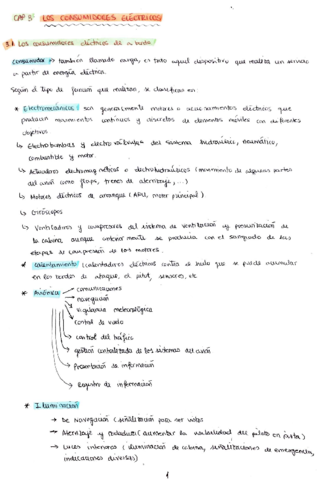 CAP 8: LOS CONSUMIDORES ELÉCTRICOS
8.1 Los consumidores eléctricos de a bordo
Consumidor → también llamado carga, es todo aquel dispositivo que realiza un servicio
a partir de energía eléctrica.
Según el tipo de función que realizan, se clasifican en:
* Electromecánicos: son generalmente motores o accionamientos eléctricos que
producen movimientos continuos y discretos de elementos móviles con diferentes
objetivos
↳ Electrobombas y electroválvulas del sistema hidráulico, neumático,
combustible y motor.
↳ Actuadores electromagnéticos o electrohidráulicos (movimiento de algunas partes
del avión como flaps, trenes de aterrizaje, ...)
↳ Motores eléctricos de arranque (APU, motor principal)
↳ Giróscopos
↳ Ventiladores y compresores del sistema de ventilación y presurización de
la cabina, aunque últimamente se produzca con el sangrado de las
etapas de compresión de los motores.
* Calentamiento (calentadores eléctricos contra el hielo que se puede acumular
en los bordes de ataque, el pitot, sensores, etc.
* Aviónica → comunicaciones
→ navegación
→ vigilancia meteorológica
→ Control de vuelo
→ control del tráfico
→ gestión centralizada de los sistemas del avión
→ Presentación de información
→ Registro de información
* Iluminación
→ De Navegación (señalización para ser vistos
→ Aterrizaje y rodadura (aumentar la visibilidad del piloto en pista)
→ Luces interiores (iluminación de cabina, señalizaciones de emergencia,
indicaciones diversas)
1